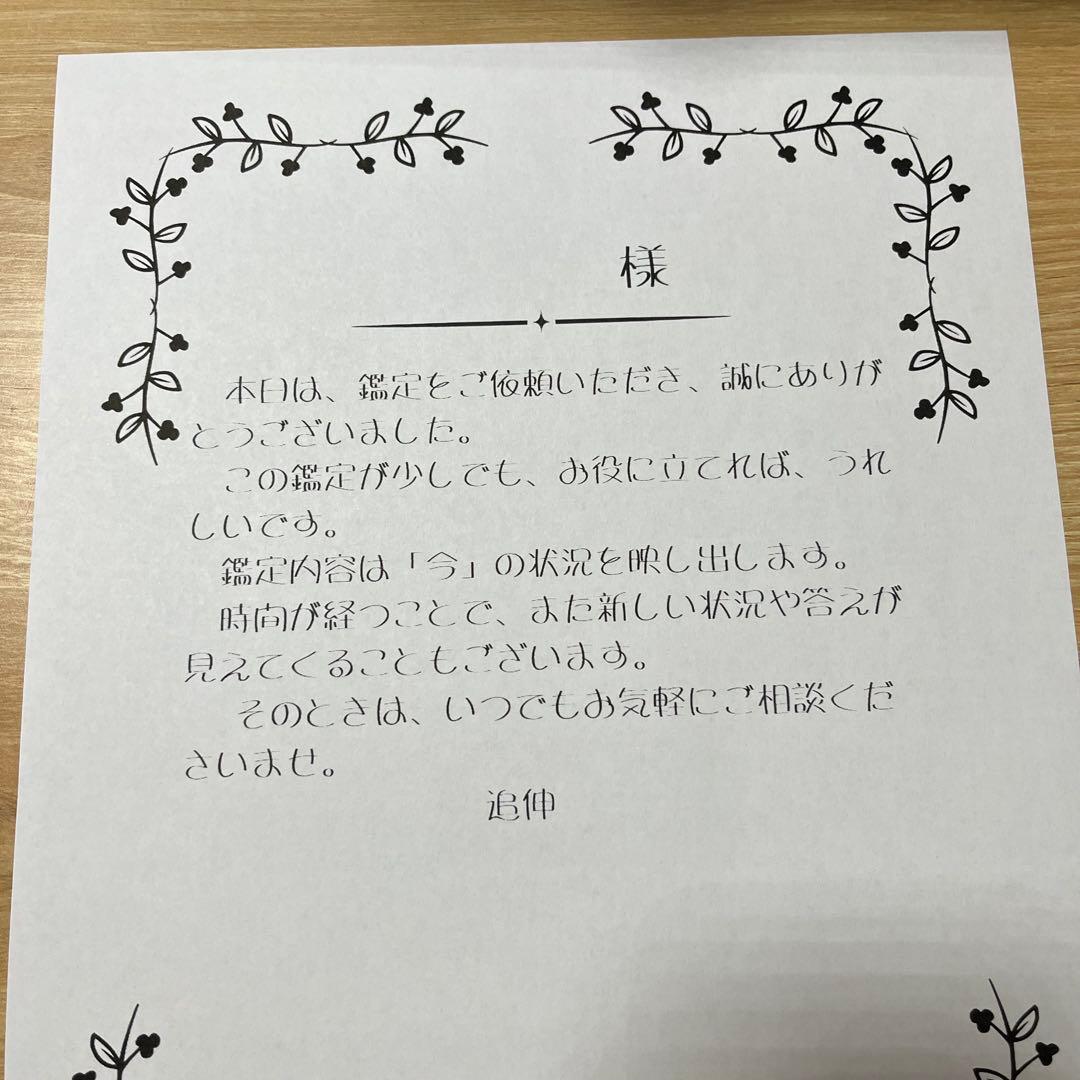 様
本日は、鑑定をご依頼いただき、誠にありが
とうございました。
この鑑定が少しでも、お役に立てれば、うれ
しいです。
鑑定内容は「今」の状況を映し出します。
時間が経つことで、また新しい状況や答えが
見えてくることもございます。
そのときは、いつでもお気軽にご相談くだ
さいませ。
追伸